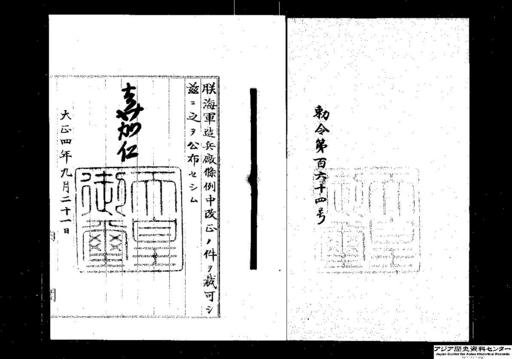 勅令第百六十四号
朕海軍造兵廠條例中改正ノ件ヲ裁可シ
茲ニ之ヲ公布セシム
嘉仁
天皇
御璽
大正四年九月二十一日
アジア歴史資料センター
Japan Center for Asian Historical Records